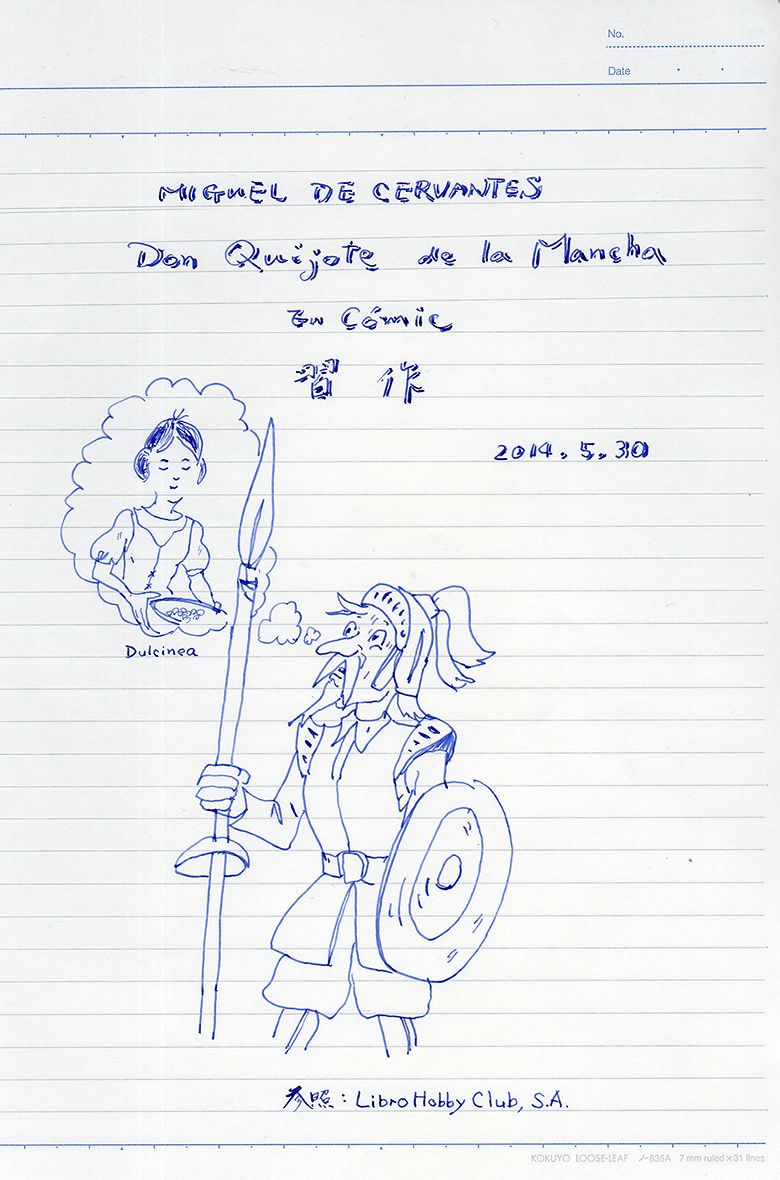 No.
Date
MIGUEL DE CERVANTES
Don Quijote de la Mancha
En Cómic
習作
2014.5.30
Dulcinea
参照: Libro Hobby Club, S.A.
KOKUYO LOOSE-LEAF ノ-836A 7 mm ruled×31 lines